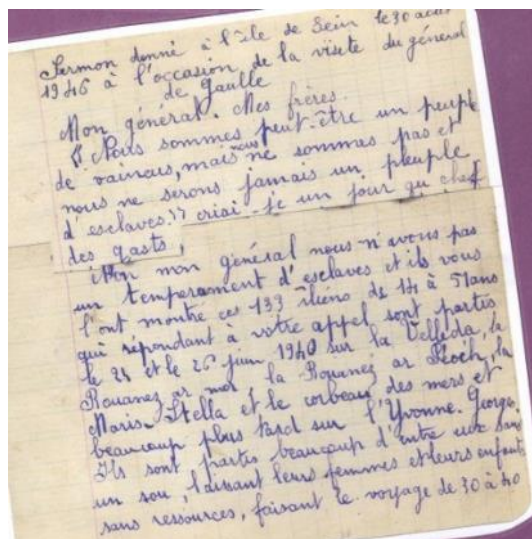 Sermon donné à l'île de Sein le 30 août
1946 à l'occasion de la visite du général
de Gaulle
Mon général. Mes frères.
"Nous sommes peut-être un peuple
de vaincus, mais nous ne sommes pas et
nous ne serons jamais un peuple
d'esclaves" criai-je un jour au chef
des gasts,
Non mon général nous n'avons pas
un temperament d'esclaves et ils vous
l'ont montré ces 133 îliens de 14 à 51 ans
qui répondant à votre appel sont partis
le 24 et le 26 juin 1940 sur la Velléda, la
Rouanez ar mor, la Rouanez ar Peoch, la
Maris-Stella et le corbeau des mers et
beaucoup plus tard sur l'Yvonne-Georges
Ils sont partis beaucoup d'entre eux sans
un sou, laissant leurs femmes et leurs enfants
sans ressources, faisant le voyage de 30 à 40